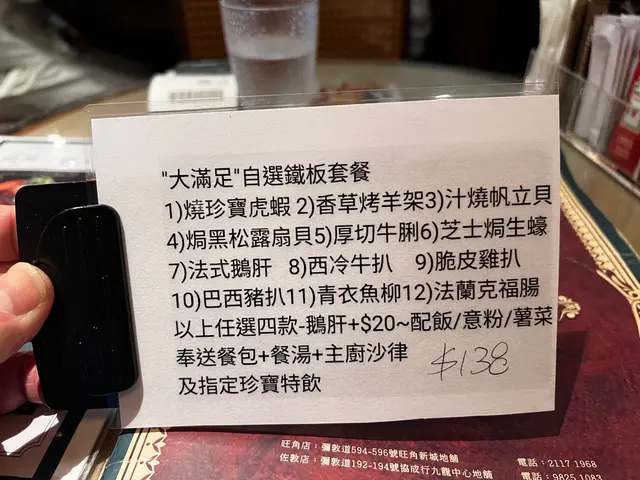 "大滿足"自選鐵板套餐
1)燒珍寶虎蝦 2)香草烤羊架3)汁燒帆立貝
4)焗黑松露扇貝5)厚切牛脷6)芝士焗生蠔
7)法式鵝肝 8)西冷牛扒 9)脆皮雞扒
10)巴西豬扒11)青衣魚柳12)法蘭克福腸
以上任選四款-鵝肝+$20~配飯/意粉/薯菜
奉送餐包+餐湯+主廚沙律
及指定珍寶特飲
$138
旺角店：彌敦道594-596號旺角新城地舖
佐敦店：彌敦道192-194號協成行九龍中心地舖
電話：2117 1968
電話：9825 1083